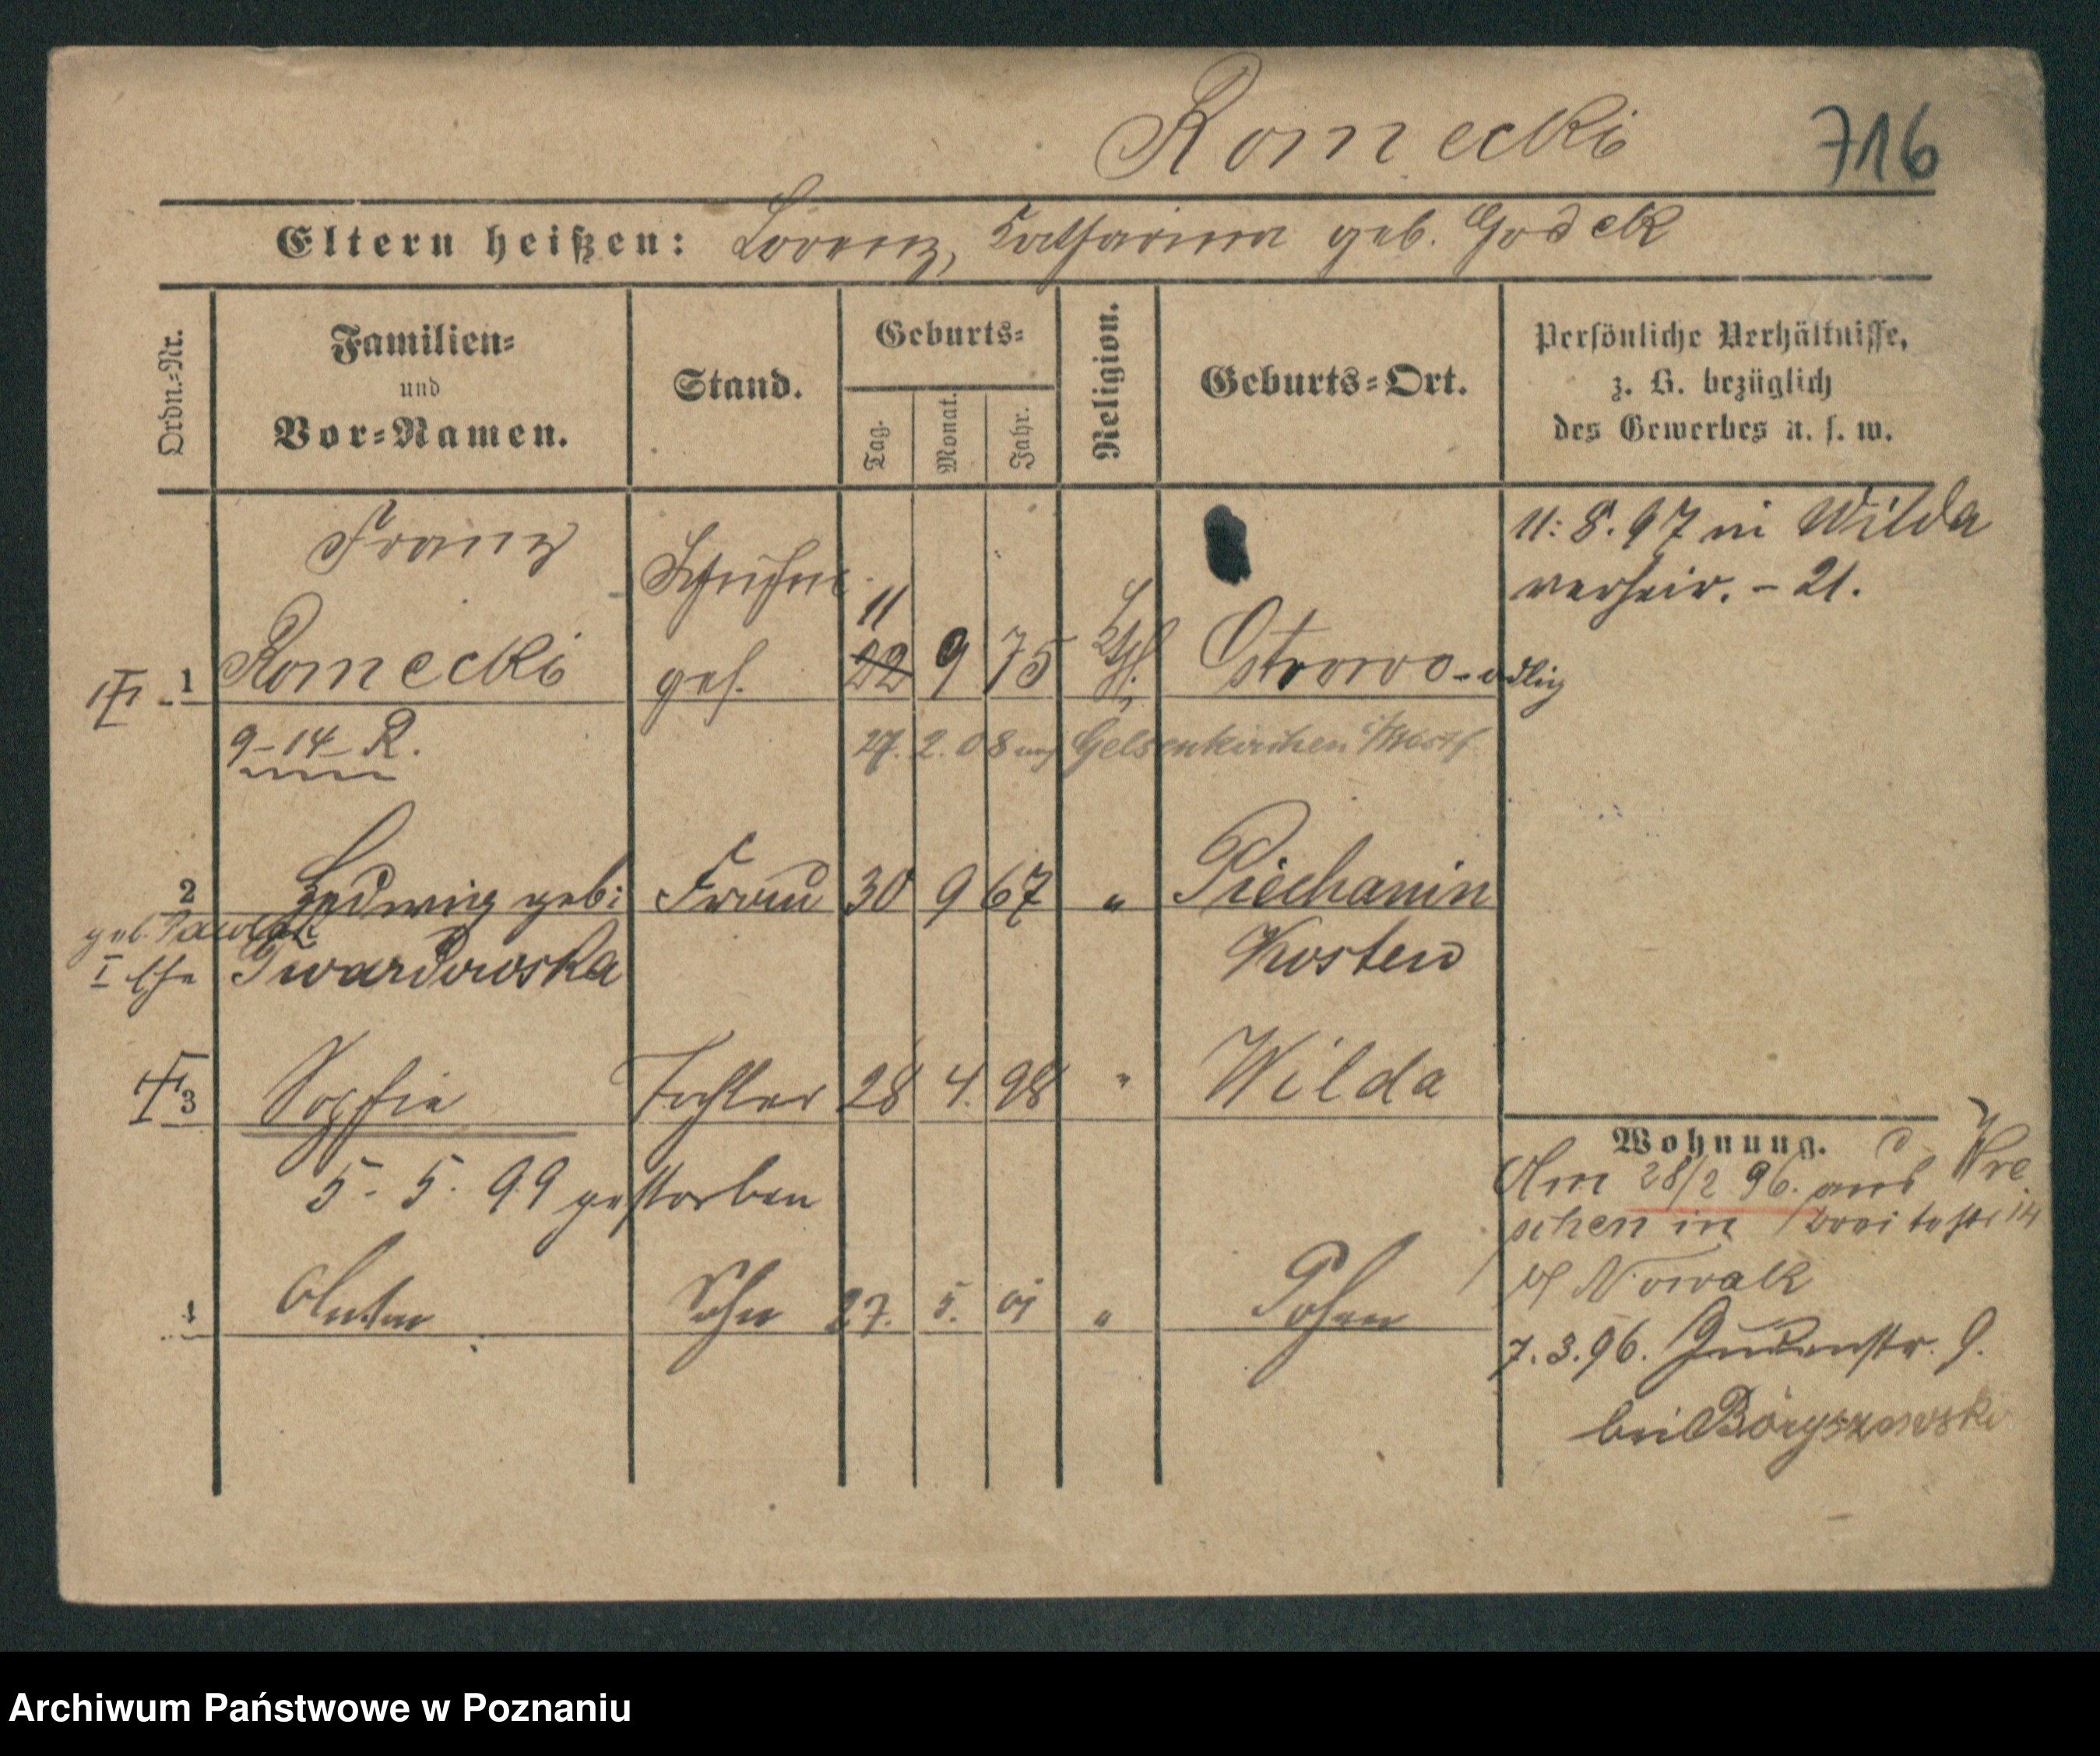 Romecki 716
Eltern heißen: Lorenz, Katharina geb. Godek
Ordn.-Nr.
Familien-
und
Vor-Namen.
Stand.
Geburts-
Tag.
Monat.
Jahr.
Religion.
Geburts-Ort.
Persönliche Verhältnisse,
z. B. bezüglich
des Gewerbes u. s. w.
Franz
11. 8. 97 in Wilda
verheir. - 21.
11
1 Romecki ges. 22 9 75 kth. Ostrowo - adlig
9-14- R. 27. 2. 08 Gelsenkirchen
2 Hedwig geb: Frau 30 9 67 " Piechanin
geb. Pawlak
I Ehe Twardowska Kosten
3 Sophie Tochter 28 4. 98 " Wilda
5. 5. 99 gestorben
1 Anton Sohn 27. 5. 01 " Posen
Wohnung.
Am 28/2 96. aus Wre
schen in 14
bei Nowak
7. 3. 96. Judenstr. 9.
bei
Archiwum Państwowe w Poznaniu